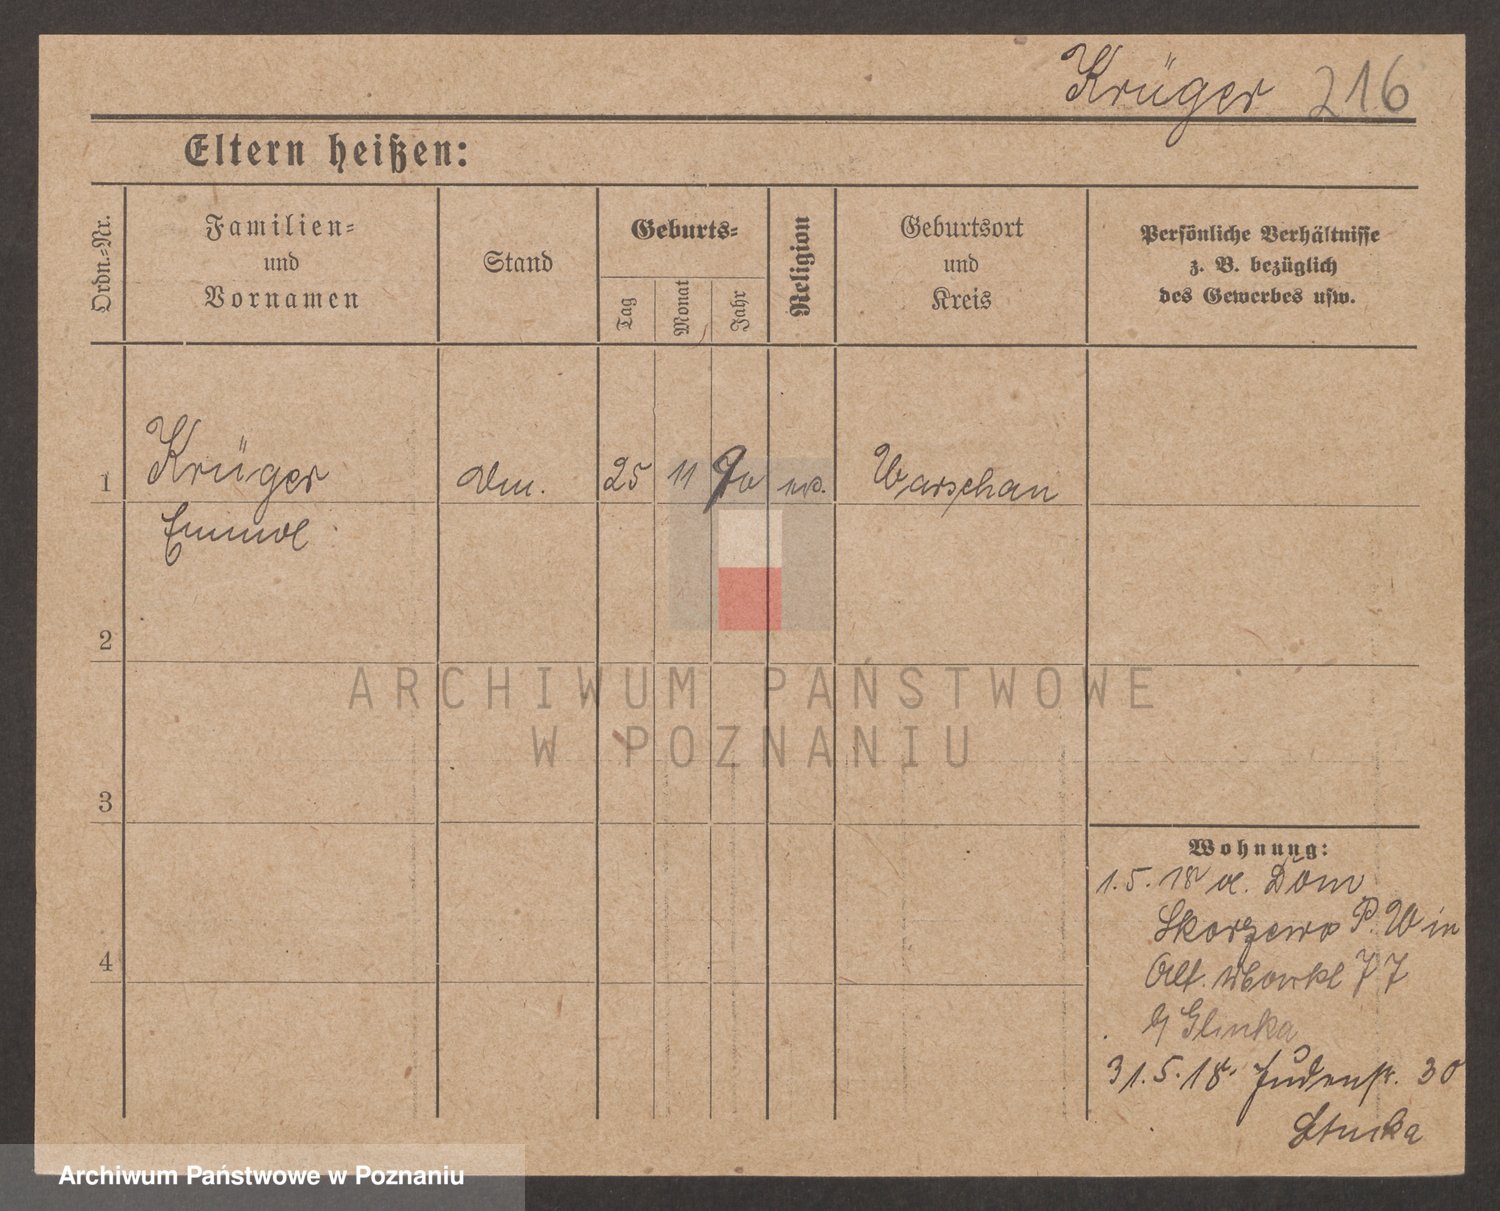 Krüger 216
Eltern heißen:
Ordn.=Nr.
Familien=
und
Vornamen
Stand
Geburts=
Tag
Monat
Jahr
Religion
Geburtsort
und
Kreis
Persönliche Verhältnisse
z. B. bezüglich
des Gewerbes usw.
1 Krüger 25 11 70 Warschau
2
3
4
Wohnung:
1.5.18 a. Dom
Skorzewo P. W in
Alt. 77
Glinka
31.5.18. Judenstr. 30
ARCHIWUM PAŃSTWOWE
W POZNANIU
Archiwum Państwowe w Poznaniu